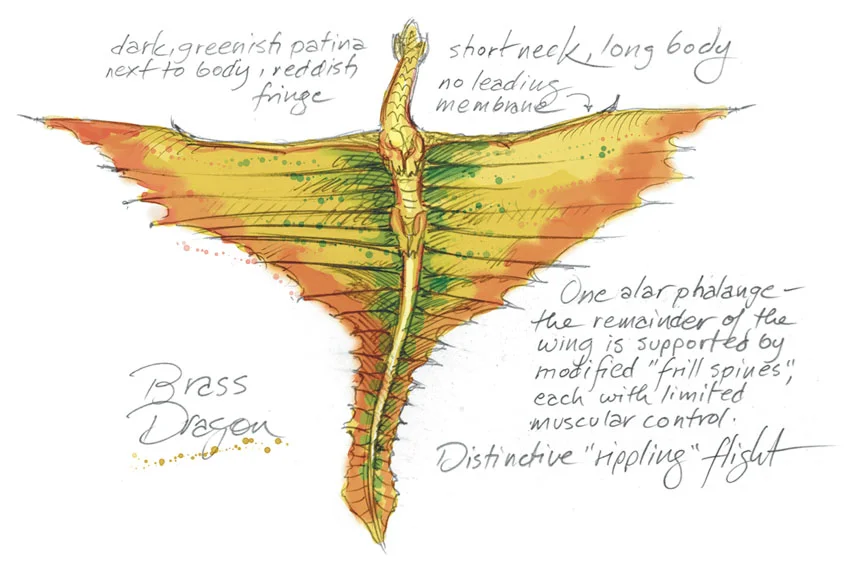 dark, greenish patina
next to body, reddish
fringe
short neck, long body
no leading
membrane
One alar phalange —
the remainder of the
wing is supported by
modified "frill spines",
each with limited
muscular control.
Distinctive "rippling" flight
Brass
Dragon